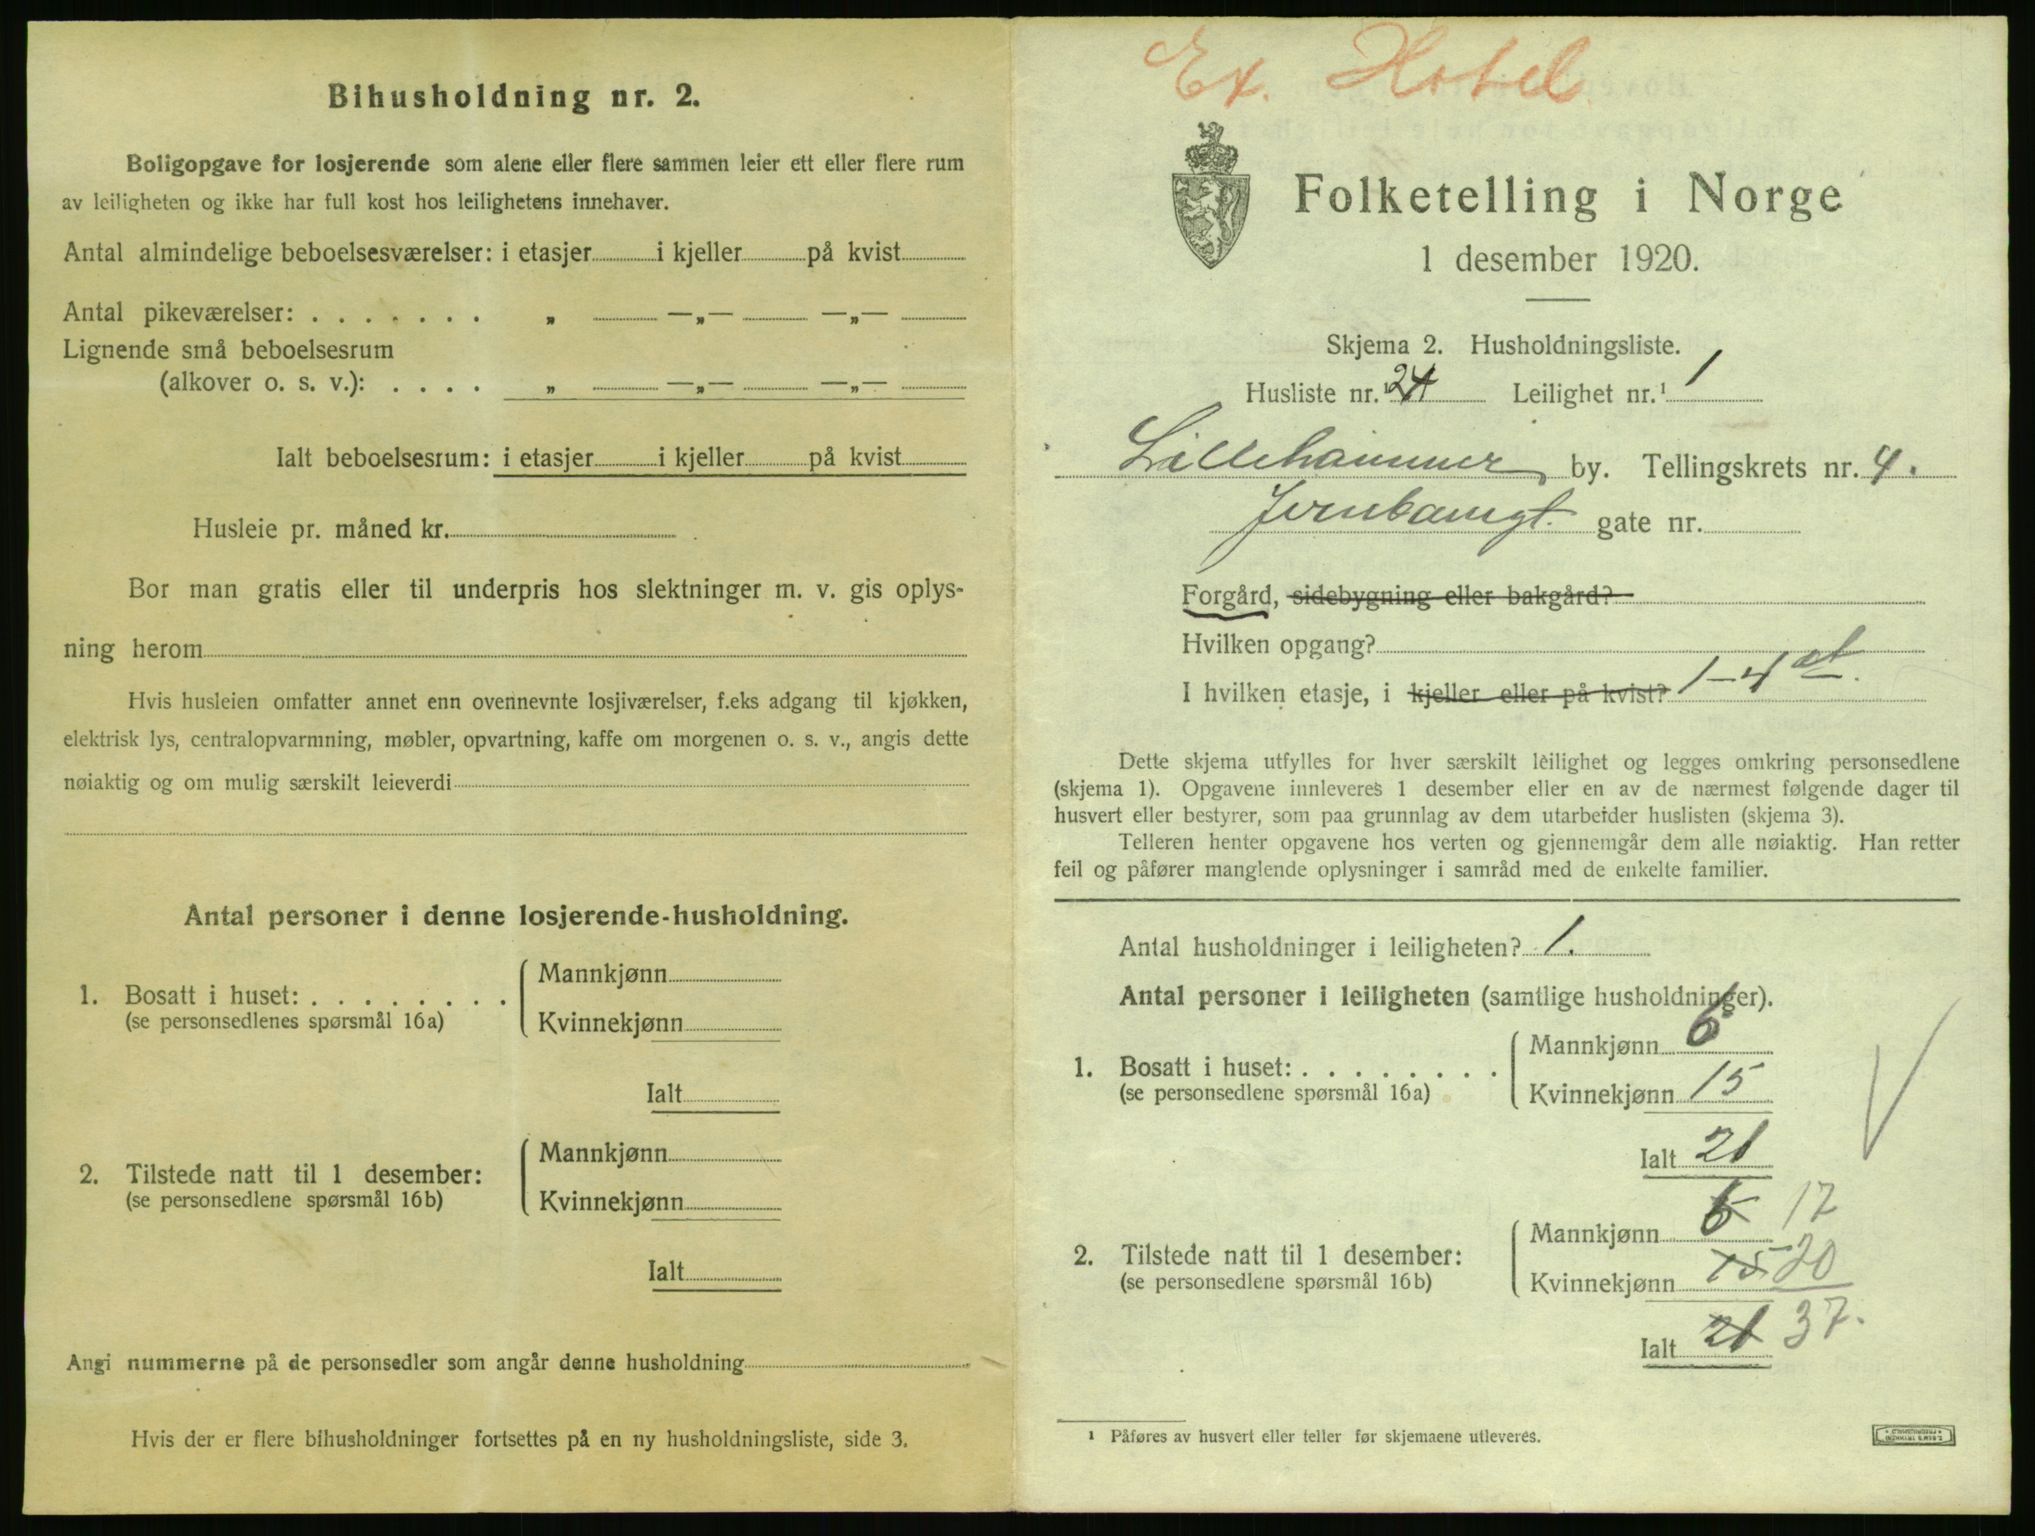 Bihusholdning nr. 2.
Boligopgave for losjerende som alene eller flere sammen leier ett eller flere rum
av leiligheten og ikke har full kost hos leilighetens innehaver.
Antal almindelige beboelsesværelser: i etasjer i kjeller på kvist
Antal pikeværelser: . . . . . . . „ —„— —„—
Lignende små beboelsesrum
(alkover o. s. v.): . . . . „ —„— —„—
Ialt beboelsesrum: i etasjer i kjeller på kvist
Husleie pr. måned kr.
Bor man gratis eller til underpris hos slektninger m. v. gis oplys-
ning herom
Hvis husleien omfatter annet enn ovennevnte losjiværelser, f.eks adgang til kjøkken,
elektrisk lys, centralopvarmning, møbler, opvartning, kaffe om morgenen o. s. v., angis dette
nøiaktig og om mulig særskilt leieverdi
Antal personer i denne losjerende-husholdning.
1. Bosatt i huset: . . . . . . . .
(se personsedlenes spørsmål 16a)
Mannkjønn
Kvinnekjønn
Ialt
2. Tilstede natt til 1 desember:
(se personsedlene spørsmål 16b)
Mannkjønn
Kvinnekjønn
Ialt
Angi nummerne på de personsedler som angår denne husholdning
Hvis der er flere bihusholdninger fortsettes på en ny husholdningsliste, side 3.
Ex. Hotel
Folketelling i Norge
1 desember 1920.
Skjema 2. Husholdningsliste.
Husliste nr.¹ 24 Leilighet nr.¹ 1
Lillehammer by. Tellingskrets nr. 4.
Jernbanegt. gate nr.
Forgård, sidebygning eller bakgård?
Hvilken opgang?
I hvilken etasje, i kjeller eller på kvist? 1-4 et.
Dette skjema utfylles for hver særskilt leilighet og legges omkring personsedlene
(skjema 1). Opgavene innleveres 1 desember eller en av de nærmest følgende dager til
husvert eller bestyrer, som paa grunnlag av dem utarbeider huslisten (skjema 3).
Telleren henter opgavene hos verten og gjennemgår dem alle nøiaktig. Han retter
feil og påfører manglende oplysninger i samråd med de enkelte familier.
Antal husholdninger i leiligheten? 1.
Antal personer i leiligheten (samtlige husholdninger).
1. Bosatt i huset: . . . . . . . .
(se personsedlene spørsmål 16a)
Mannkjønn 6
Kvinnekjønn 15
Ialt 21
2. Tilstede natt til 1 desember:
(se personsedlene spørsmål 16b)
Mannkjønn 6 17
Kvinnekjønn 15 20
Ialt 21 37.
¹ Påføres av husvert eller teller før skjemaene utleveres.